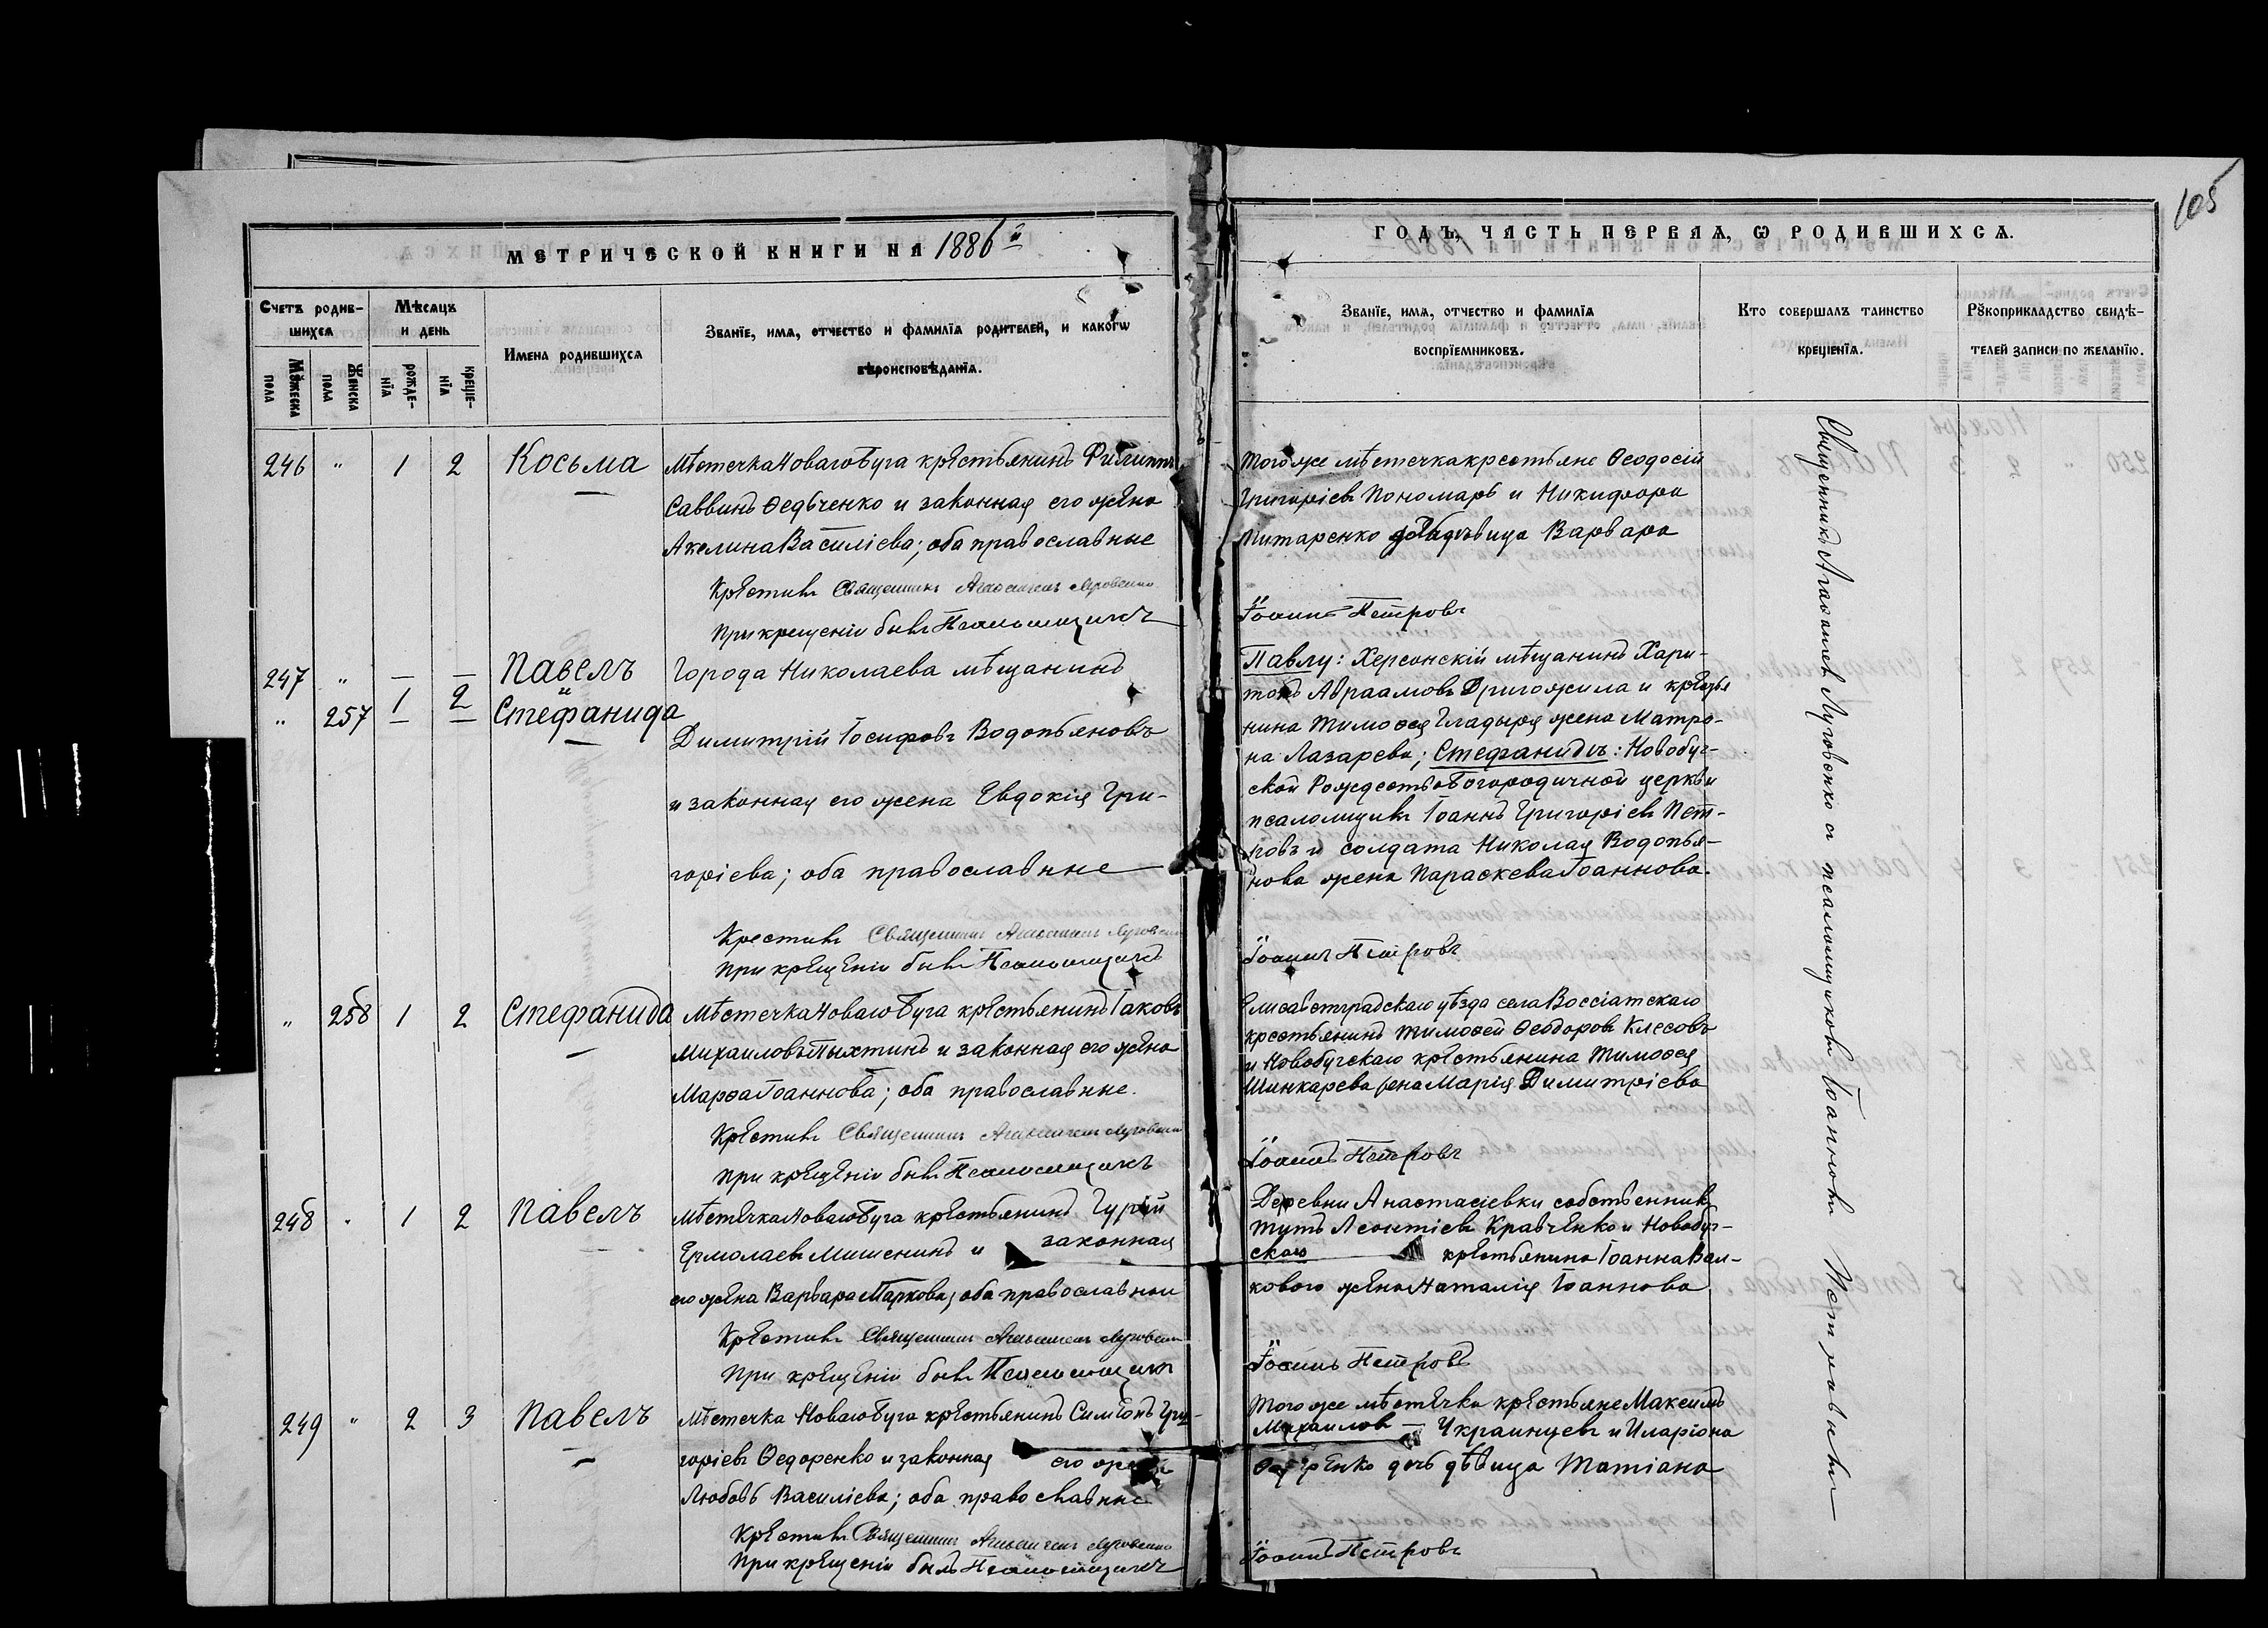 105
МЕТРИЧЕСКОЙ КНИГИ НА 1886й
ГОДЪ, ЧАСТЬ ПЕРВАЯ, Ѡ РОДИВШИХСЯ.
Счетъ родив-
шихся
Мѣсяцъ
и день
Имена родившихся
Званїе, имя, отчество и фамилїя родителей, и какогѡ
вѣроисповѣданїя.
Мꙋжеска
пола
Женска
пола
рожде-
нїя
креще-
нїя
Званїе, имя, отчество и фамилїя
воспрїемниковъ.
Кто совершалъ таинство
крещенїя.
Рꙋкоприкладство свидѣ-
телей записи по желанїю.
246 " 1 2 Косьма
Мѣстечка Новаго Буга крестьянинъ Филиппъ
Саввинъ Ѳедьченко и законная его жена
Акелина Василіева; оба православные
Крестилъ Священникъ Луговенко
При крещеніи былъ Псаломщикъ
Того же мѣстечка крестьяне Ѳеодосій
Григоріевъ Пономарь и Никифора
Митаренко дѣвица Варвара
Іоаннъ Петровъ
247 " 1 2 Павелъ
и
" 257 Стефанида
Города Николаева мѣщанинъ
Димитрій Іосифовъ Водопьяновъ
и законная его жена Евдокія Гри-
горіева; оба православные
Крестилъ Священникъ Луговенко
При крещеніи былъ Псаломщикъ
Павлу: Херсонскій мѣщанинъ Хари-
тонъ Авраамовъ Дригожила и кресть
нина Тимоѳея Гладыря жена Матро-
на Лазарева; Стефанидѣ: Новобуг-
ской Рождество Богородичной церкви
псаломщикъ Іоаннъ Григоріевъ Пет-
ровъ и солдата Николая Водопья-
нова жена Параскева Іоаннова.
Іоаннъ Петровъ
" 258 1 2 Стефанида
Мѣстечка Новаго Буга крестьянинъ Іаковъ
Михаиловъ Пыхтинъ и законная его жена
Марѳа Іоаннова; оба православные.
Крестилъ Священникъ Луговенко
При крещеніи былъ Псаломщикъ
Елисаветградскаго уѣзда села Воссіатскаго
крестьянинъ Тимоѳей Ѳеодоровъ Клесовъ
и Новобугскаго крестьянина Тимоѳея
Шинкарева жена Марія Димитріева
Іоаннъ Петровъ
248 " 1 2 Павелъ
Мѣстечка Новаго Буга крестьянинъ Гурій
Ермолаевъ Мишенинъ и законная
его жена Варвара Маркова, оба православныи
Крестилъ Священникъ Луговенко
При крещеніи былъ Псаломщикъ
Деревни Анастасіевки собственникъ
Леонтіевъ Кравченко и Новобуг-
скаго крестьянина Іоанна Вол-
кового жена Наталія Іоаннова
Іоаннъ Петровъ
249 " 2 3 Павелъ
Мѣстечка Новаго Буга крестьянинъ Симеонъ Гри-
горіевъ Ѳедоренко и законная его жена
Любовь Василіева; оба православные
Крестилъ Священникъ Луговенко
При крещеніи былъ Псаломщикъ
Того же мѣстечка крестьяне Максимъ
Михаиловъ Украинцевъ и Иларіона
Ѳедоренко дочь дѣвица Татіана
Іоаннъ Петровъ
Священникъ Луговенко съ псаломщикомъ Іоанномъ Петровымъ